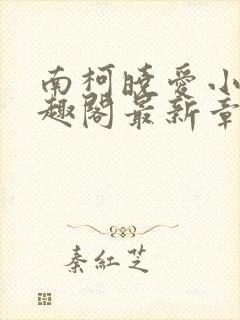 南柯曉愛小
趣閣最新章
秦紅芝